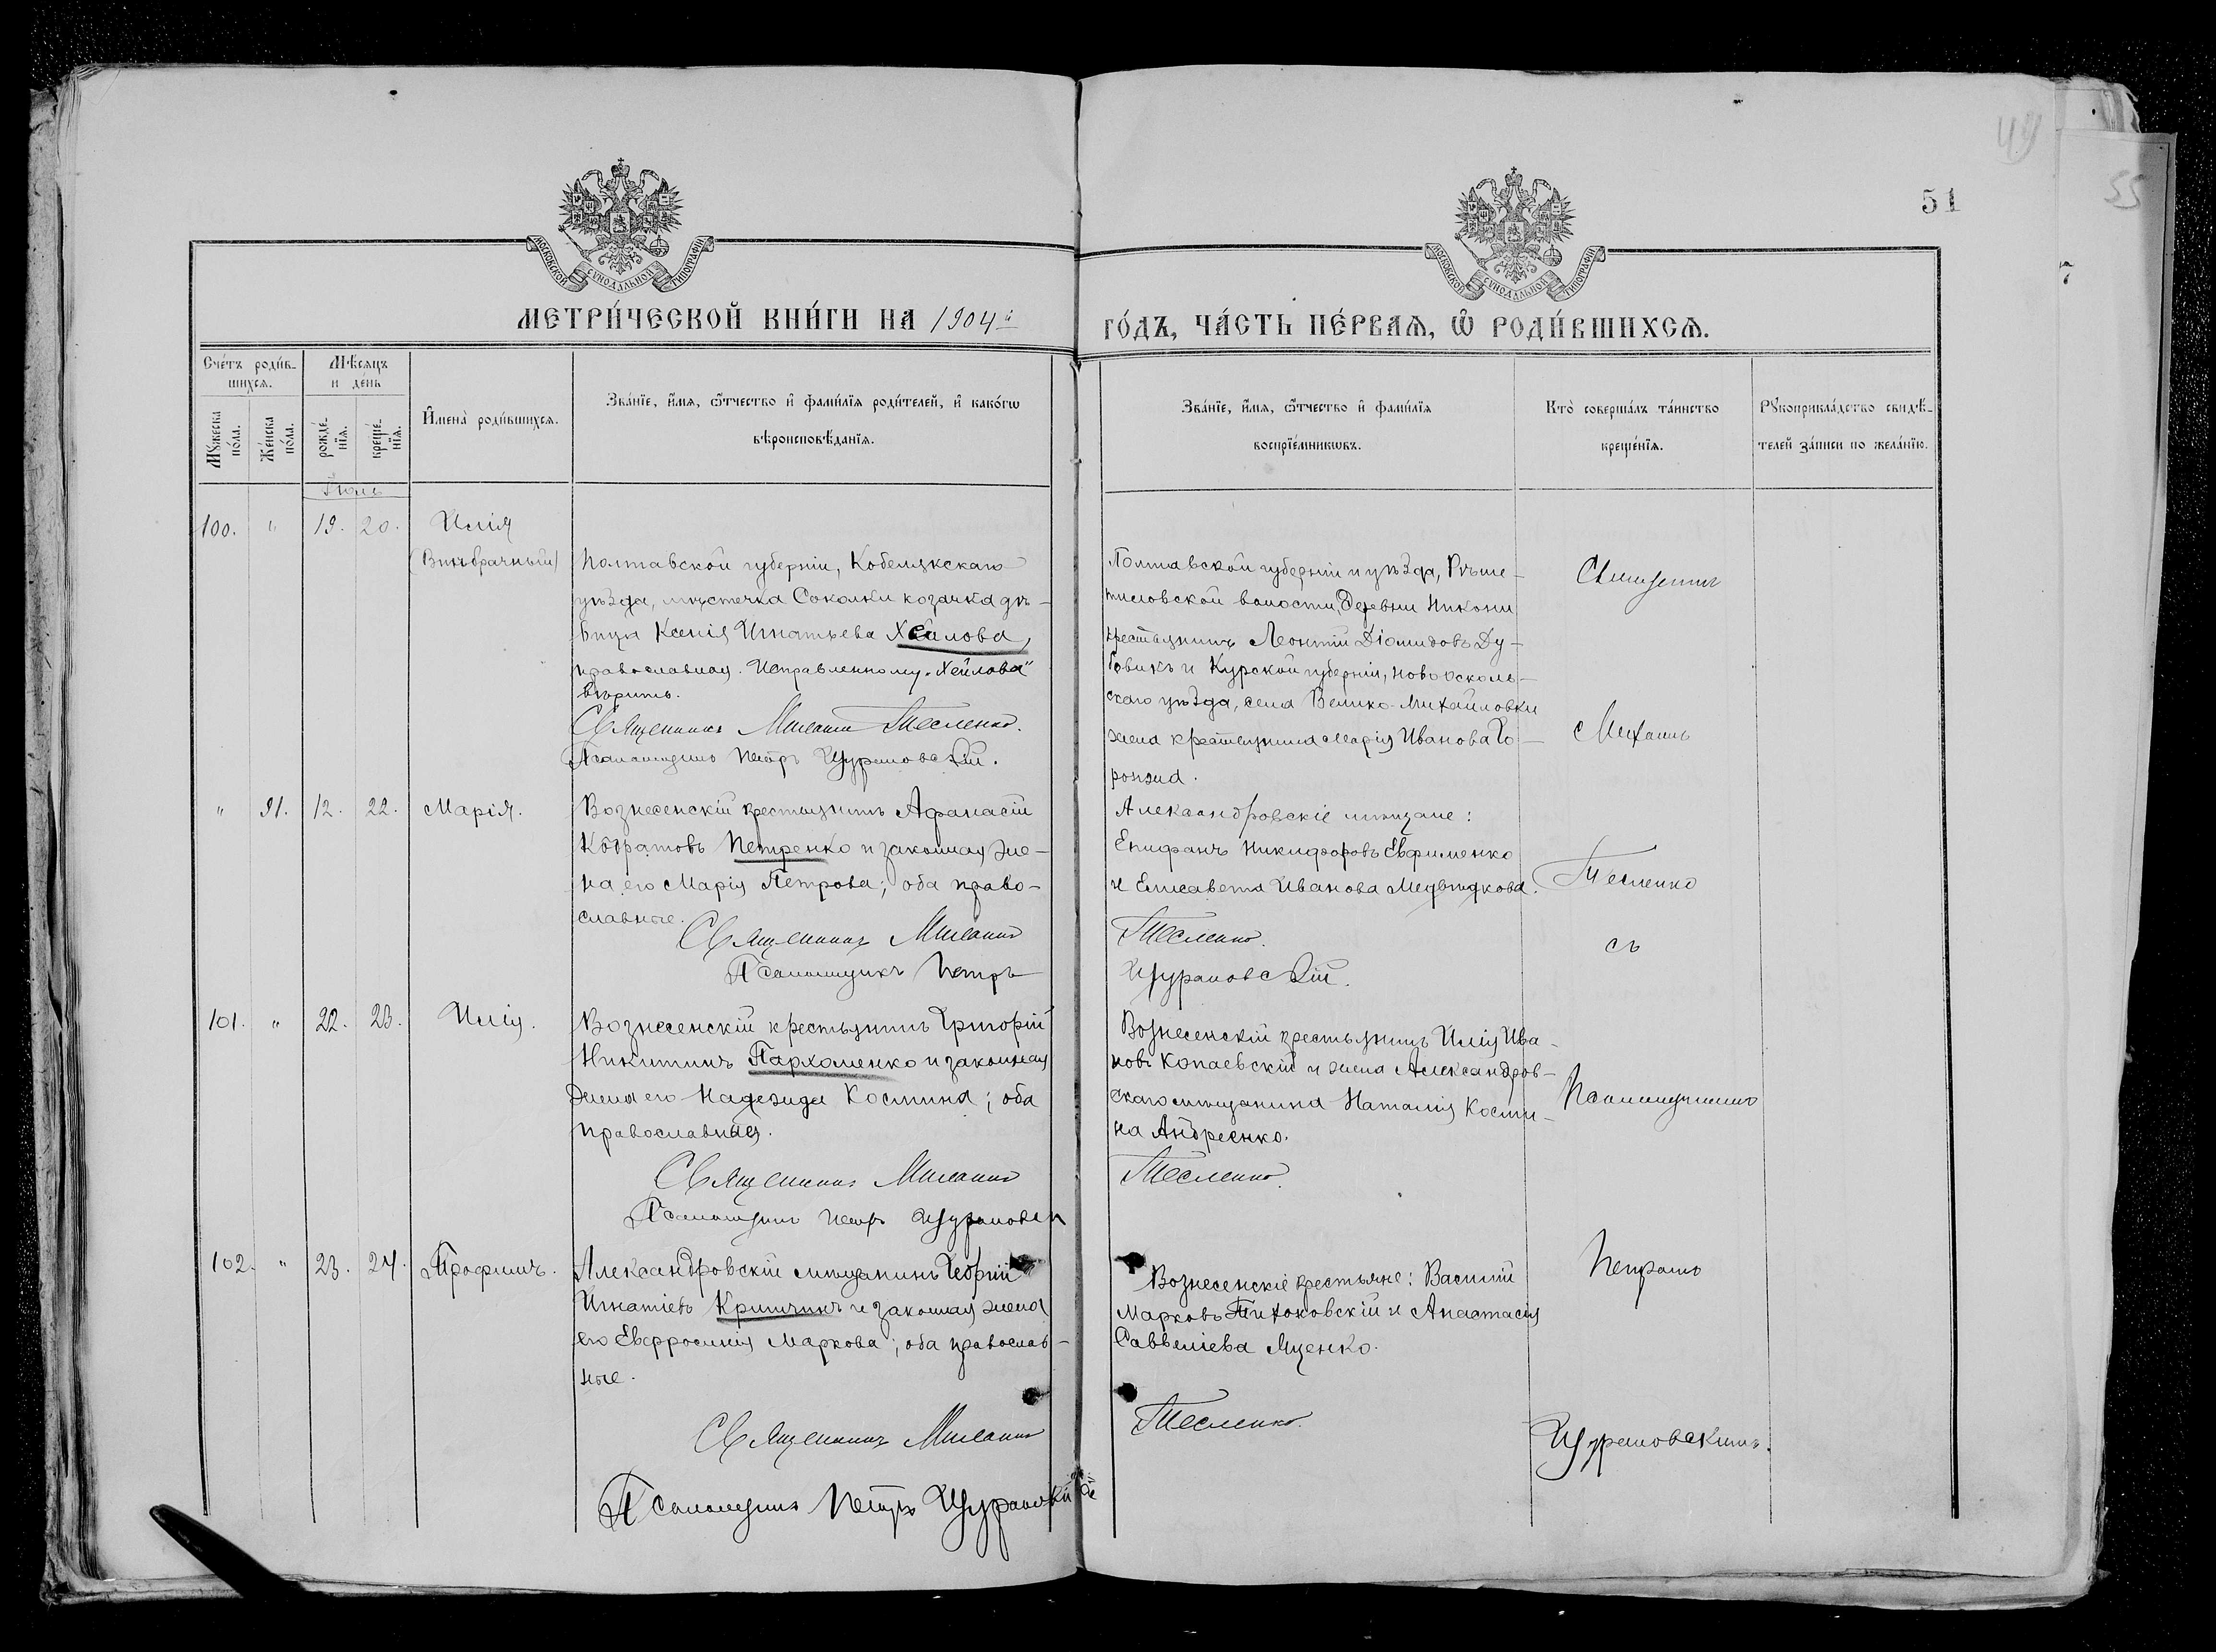 49
51
55
7
МОСКОВСКОЙ СУНОДАЛЬНОЙ ТИПОГРАФІИ
МОСКОВСКОЙ СУНОДАЛЬНОЙ ТИПОГРАФІИ
МЕТРИ́ЧЕСКОЙ КНИ́ГИ НА 1904й
ГО́ДЪ, ЧА́СТЬ ПЕ́РВАѦ, Ѡ҆ РОДИ́ВШИХСѦ.
Сче́тъ роди́в-
шихсѧ.
Мѣ́сѧцъ
и де́нь
Мꙋ́жеска
по́ла.
Же́нска
по́ла.
рожде́-
нїѧ.
креще́-
нїѧ.
И҆мена̀ роди́вшихсѧ.
Зва́нїе, и҆́мѧ, ѻ҆́тчество и҆ фами́лїѧ роди́телей, и҆ како́гѡ
вѣроисповѣ́данїѧ.
Зва́нїе, и҆́мѧ, ѻ҆́тчество и҆ фами́лїѧ
воспрїе́мникѡвъ.
Кто̀ соверша́лъ та́инство
креще́нїѧ.
Рꙋкоприкла́дство свидѣ́-
телей за́писи по жела́нїю.
Іюль
100. " 19. 20. Илія
(Внѣбрачный)
Полтавской губерніи, Кобелякскаго
уѣзда, мѣстечка Соколки козачка дѣ-
вица Ксенія Игнатьева Хейлова,
православная. Исправленному „Хейлова"
вѣрить.
Священникъ Михаилъ Тесленко.
Псаломщикъ Петръ Щурановскій.
Полтавской губерніи и уѣзда, Рѣше-
тиловской волости, деревни Никони
крестьянинъ Леонтій Діомидовъ Ду-
бовикъ и Курской губерніи, Новоосколь-
скаго уѣзда, села Велико-Михайловки
жена крестьянина Марія Иванова Го-
ронжа.
Священникъ
Михаилъ
Тесленко
съ
Псаломщикомъ
Петромъ
Щурановскимъ.
" 91. 12. 22. Марія.
Вознесенскій крестьянинъ Афанасій
Кодратовъ Петренко и законная же-
на его Марія Петрова; оба право-
славные.
Священникъ Михаилъ
Псаломщикъ Петръ
Александровскіе мѣщане:
Епифанъ Никифоровъ Евфименко
и Елисавета Иванова Медвѣдкова.
Тесленко.
Щурановскій.
101. " 22. 23. Илія.
Вознесенскій крестьянинъ Григорій
Никитинъ Пархоменко и законная
жена его Надежда Костина; оба
православные.
Священникъ Михаилъ
Псаломщикъ Петръ
Вознесенскій крестьянинъ Илія Ива-
новъ Копаевскій и жена Александров-
скаго мѣщанина Наталія Кости-
на Андреенко.
Тесленко.
102. " 23. 24. Трофимъ.
Александровскій мѣщанинъ Георгій
Игнатіевъ Кришчикъ и законная жена
его Евфросинія Маркова; оба православ-
ные.
Священникъ Михаилъ
Псаломщикъ Петръ
Вознесенскіе крестьяне: Василій
Марковъ Тихоновскій и Анастасія
Саввеліева Яценко.
Тесленко.